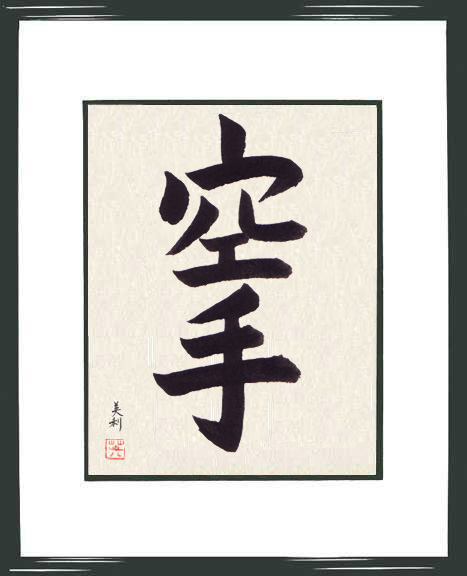 空手
美利